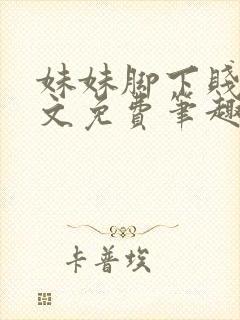 妹妹脚下贱
文免费笔趣
卡普埃